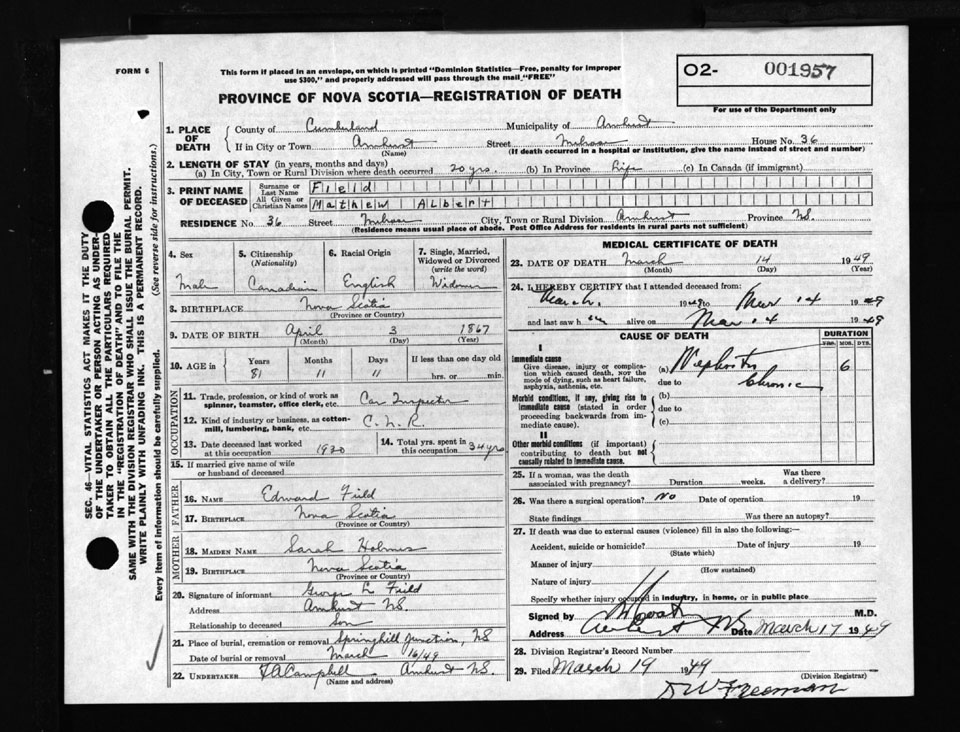 FORM 6
This form if placed in an envelope, on which is printed "Dominion Statistics—Free, penalty for improper
use $300," and properly addressed will pass through the mail "FREE"
O2- 001957
For use of the Department only
PROVINCE OF NOVA SCOTIA—REGISTRATION OF DEATH
1. PLACE OF DEATH
County of Cumberland Municipality of Amherst
If in City or Town Amherst Street House No. 36
(Name) (If death occurred in a hospital or institution, give the name instead of street and number)
2. LENGTH OF STAY (in years, months and days)
(a) In City, Town or Rural Division where death occurred 20 yrs. (b) In Province Life (c) In Canada (if immigrant)
3. PRINT NAME OF DECEASED
Surname or Last Name Field
All Given or Christian Names Mathew Albert
RESIDENCE No. 36 Street City, Town or Rural Division Amherst Province N.S.
(Residence means usual place of abode. Post Office Address for residents in rural parts not sufficient)
4. Sex Male
5. Citizenship (Nationality) Canadian
6. Racial Origin English
7. Single, Married, Widowed or Divorced (write the word) Widower
8. BIRTHPLACE Nova Scotia
(Province or Country)
9. DATE OF BIRTH April 3 1867
(Month) (Day) (Year)
10. AGE in Years Months Days If less than one day old
81 11 11 hrs. or min.
OCCUPATION
11. Trade, profession, or kind of work as spinner, teamster, office clerk, etc. Car Inspector
12. Kind of industry or business, as cotton-mill, lumbering, bank, etc. C.N.R.
13. Date deceased last worked at this occupation 1920
14. Total yrs. spent in this occupation 34 yrs
15. If married give name of wife or husband of deceased
FATHER
16. NAME Edward Field
17. BIRTHPLACE Nova Scotia
(Province or Country)
MOTHER
18. MAIDEN NAME Sarah Holmes
19. BIRTHPLACE Nova Scotia
(Province or Country)
20. Signature of informant George L Field
Address Amherst N.S.
Relationship to deceased Son
21. Place of burial, cremation or removal Springhill Junction, NS
Date of burial or removal March 16/49
22. UNDERTAKER F A Campbell Amherst N.S.
(Name and address)
MEDICAL CERTIFICATE OF DEATH
23. DATE OF DEATH March 14 1949
(Month) (Day) (Year)
24. I HEREBY CERTIFY that I attended deceased from:
March 1949 to Mar 14 1949
and last saw him alive on Mar 14 1949
CAUSE OF DEATH
DURATION
YRS. MOS. DYS.
I
Immediate cause
Give disease, injury or complication which caused death, not the mode of dying, such as heart failure, asphyxia, asthenia, etc.
(a) Nephritis 6
due to Chronic
Morbid conditions, if any, giving rise to immediate cause (stated in order proceeding backwards from immediate cause).
(b)
due to
(c)
II
Other morbid conditions (if important) contributing to death but not causally related to immediate cause.
25. If a woman, was the death associated with pregnancy? Duration weeks. Was there a delivery?
26. Was there a surgical operation? No Date of operation 19
State findings Was there an autopsy?
27. If death was due to external causes (violence) fill in also the following:—
Accident, suicide or homicide? Date of injury 19
(State which)
Manner of injury
(How sustained)
Nature of injury
Specify whether injury occurred in industry, in home, or in public place
Signed by M.D.
Address Amherst NS Date March 17 1949
28. Division Registrar's Record Number
29. Filed March 19 1949
(Division Registrar)
D W Freeman
SEC. 46—VITAL STATISTICS ACT MAKES IT THE DUTY
OF THE UNDERTAKER OR PERSON ACTING AS UNDER-
TAKER TO OBTAIN ALL THE PARTICULARS REQUIRED
IN THE "REGISTRATION OF DEATH" AND TO FILE THE
SAME WITH THE DIVISION REGISTRAR WHO SHALL ISSUE THE BURIAL PERMIT.
WRITE PLAINLY WITH UNFADING INK. THIS IS A PERMANENT RECORD.
Every item of information should be carefully supplied. (See reverse side for instructions.)